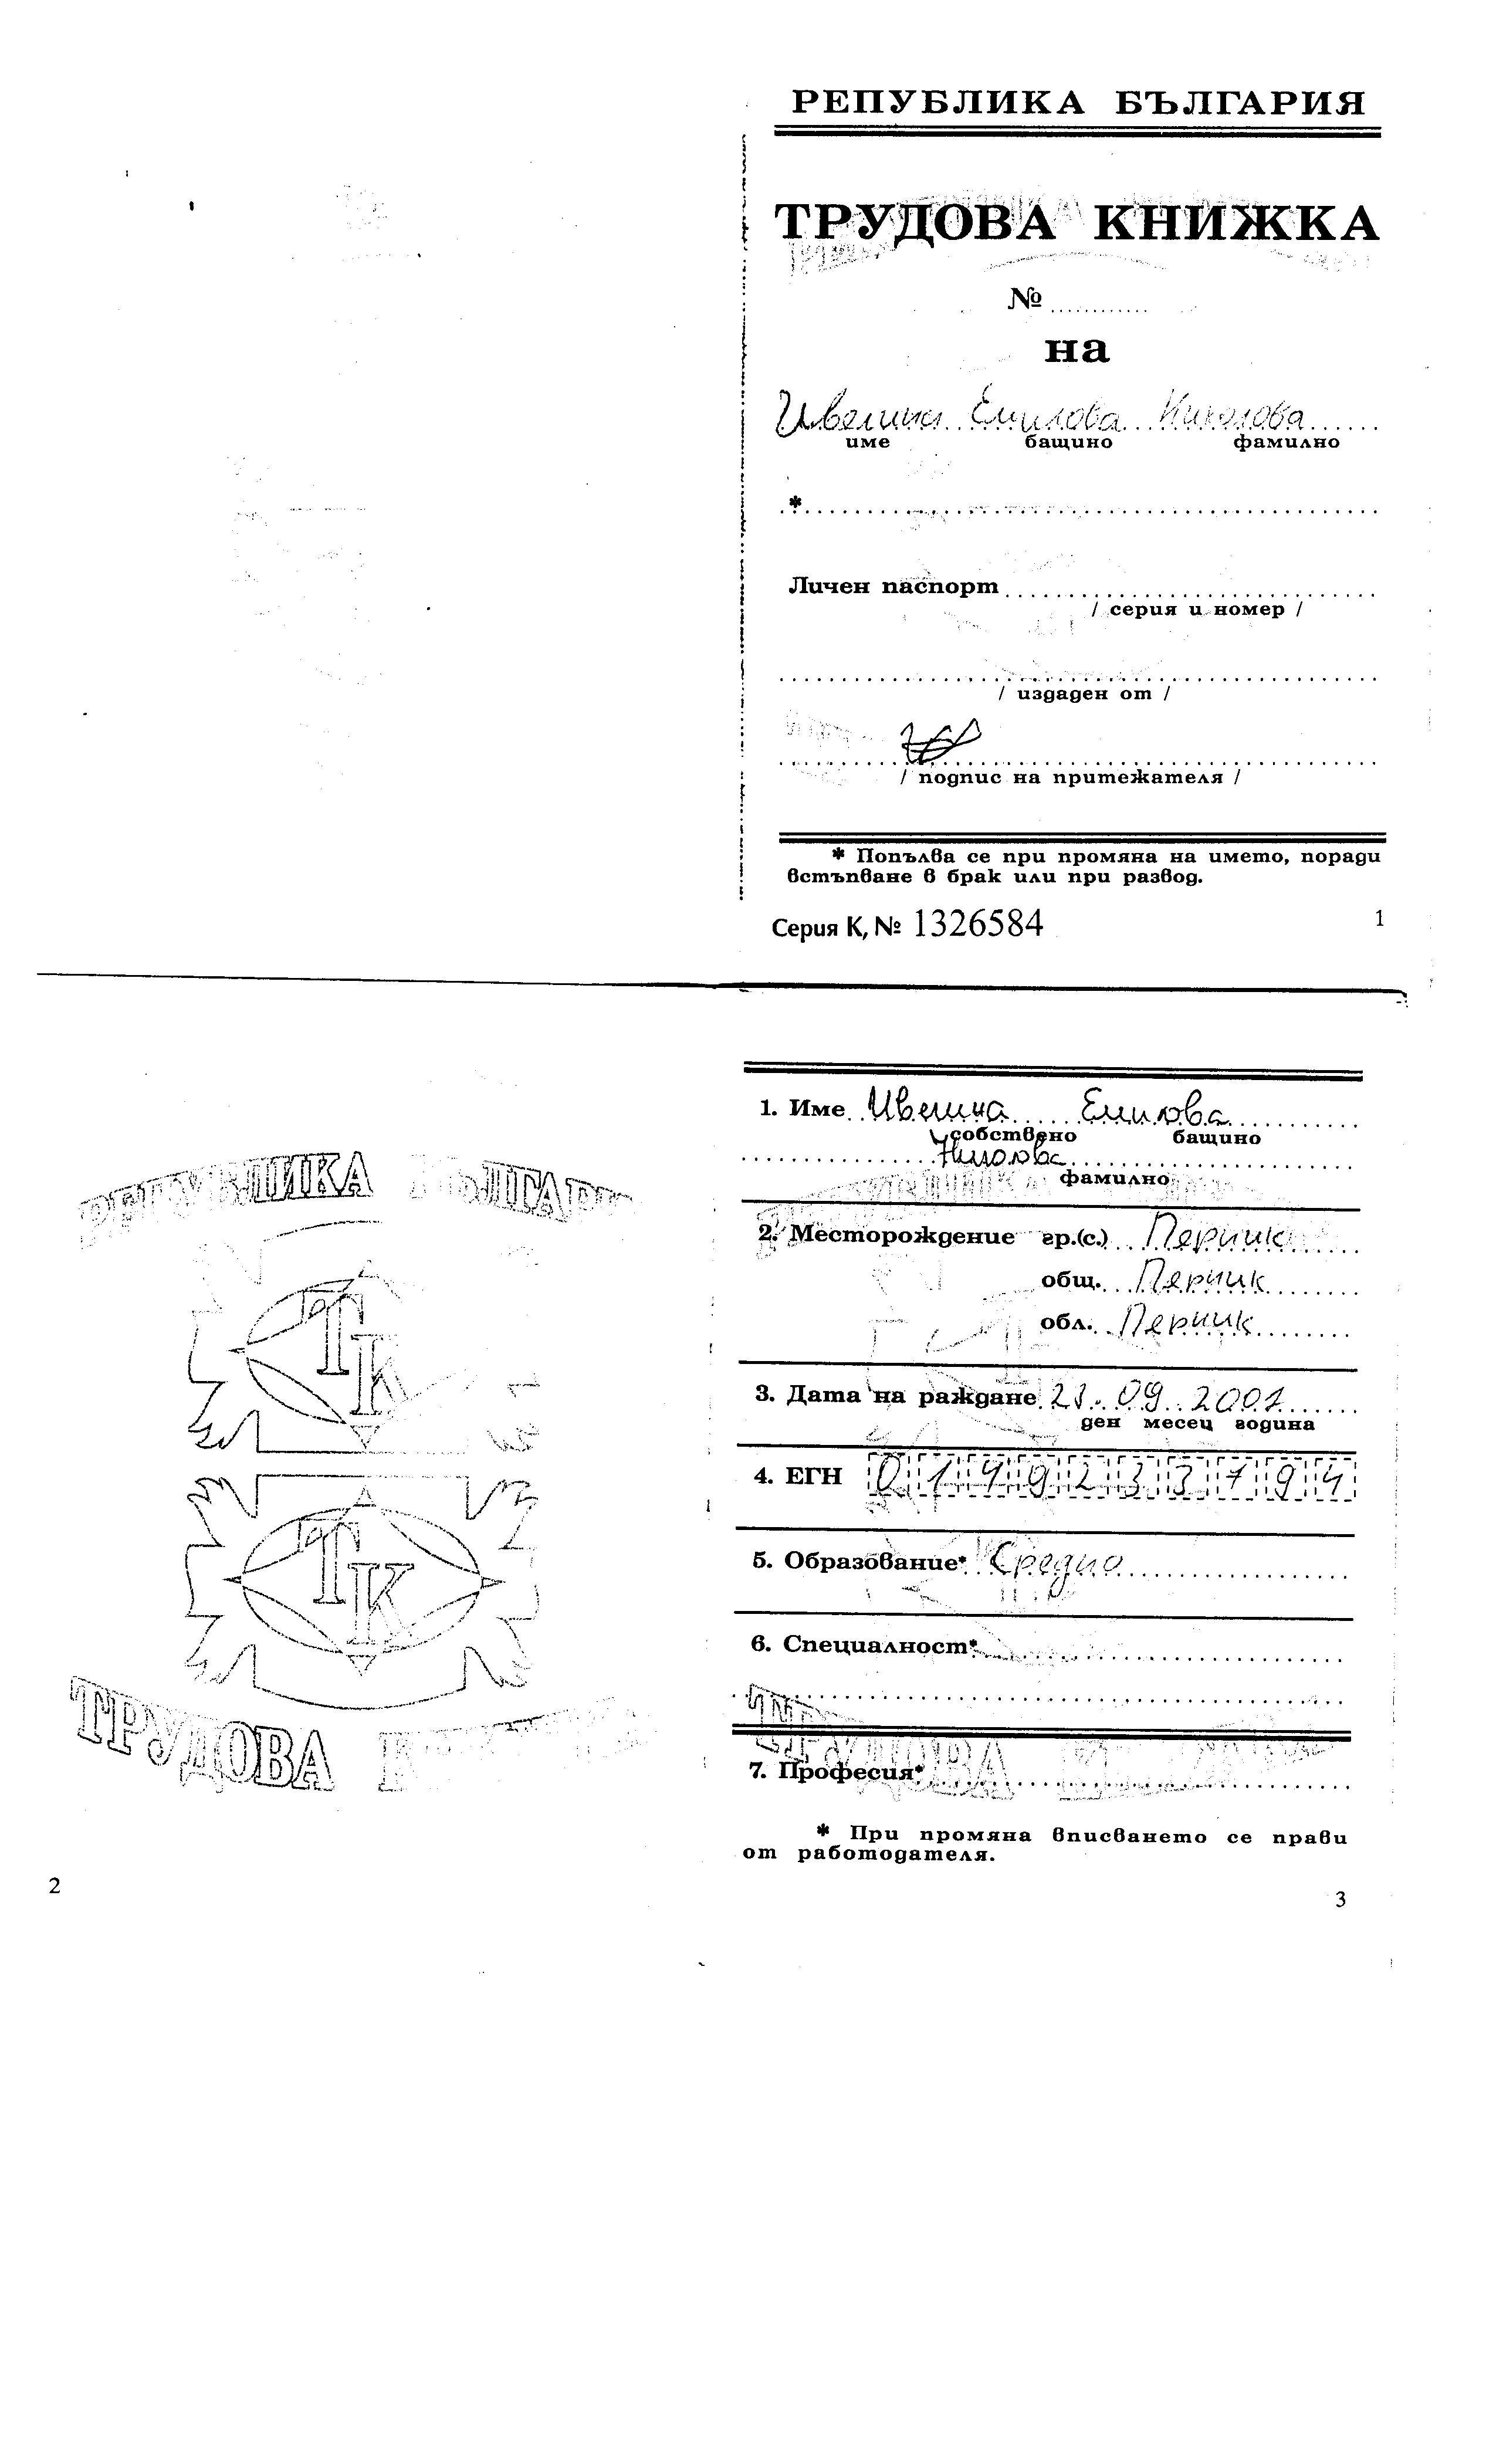 РЕПУБЛИКА БЪЛГАРИЯ
ТРУДОВА КНИЖКА
№
на
Ивелина Емилова Николова
име бащино фамилно
*
Личен паспорт
/ серия и номер /
/ издаден от /
/ подпис на притежателя /
* Попълва се при промяна на името, поради
встъпване в брак или при развод.
Серия К, № 1326584
1
РЕПУБЛИКА БЪЛГАРИЯ
ТК
ТК
ТРУДОВА
2
1. Име Ивелина Емилова
собствено бащино
фамилно
2. Месторождение гр.(с.) Перник
общ. Перник
обл. Перник
3. Дата на раждане 23. 09. 2001
ден месец година
4. ЕГН 0149233794
5. Образование* Средно
6. Специалност*
7. Професия*
* При промяна вписването се прави
от работодателя.
3